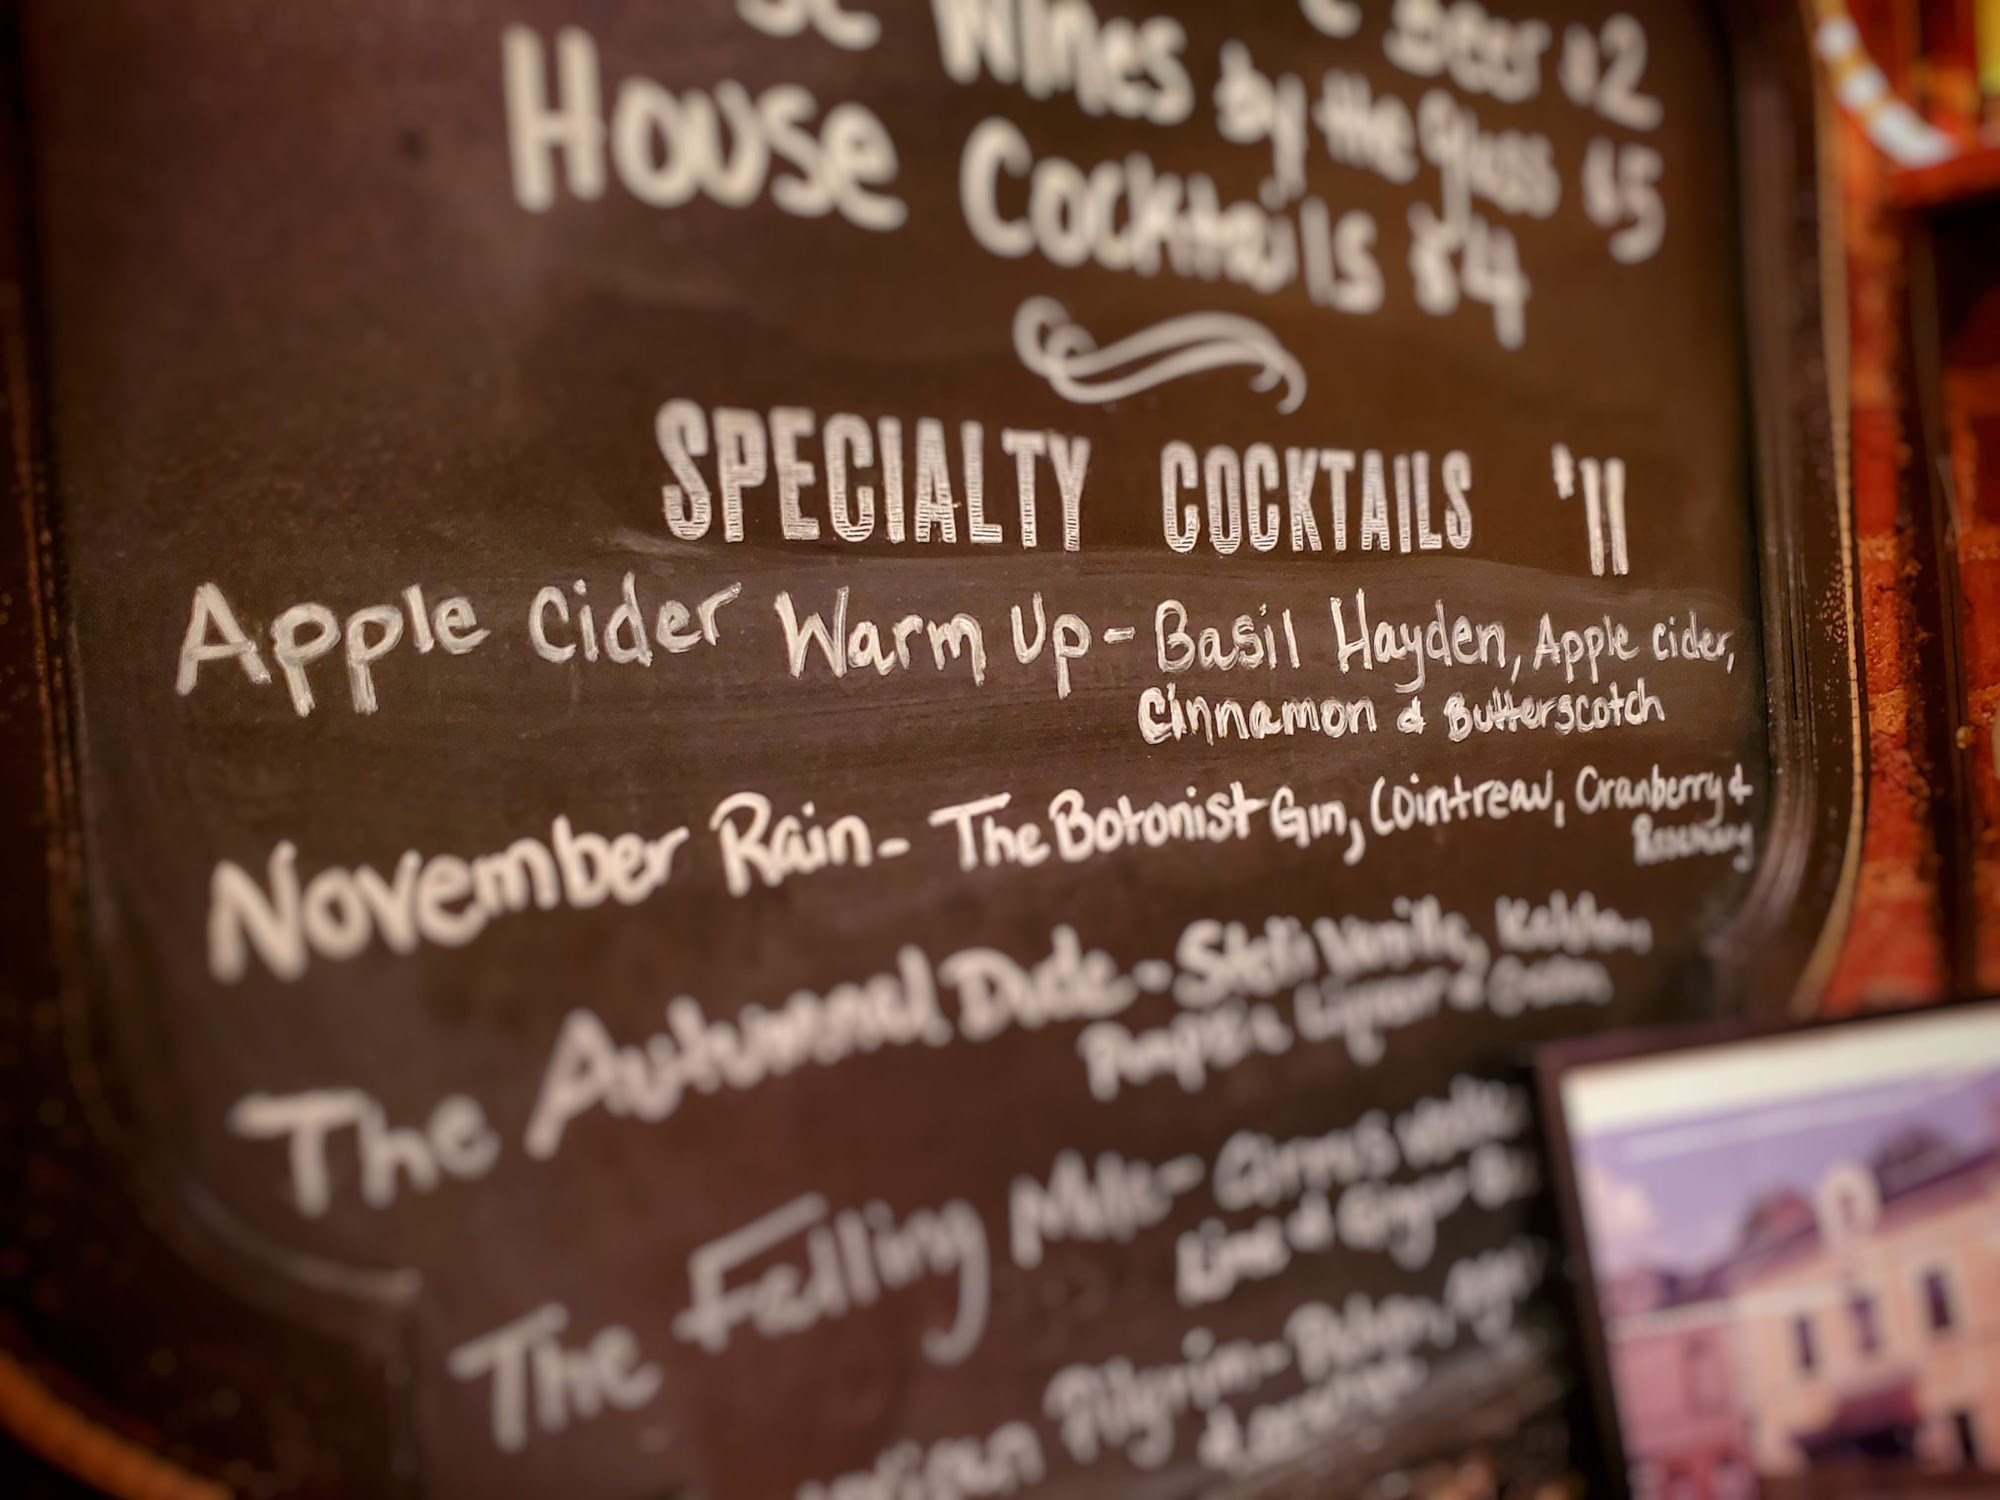 Beer $2
Wines by the Glass $5
House Cocktails $4
SPECIALTY COCKTAILS $11
Apple Cider Warm Up - Basil Hayden, Apple cider,
Cinnamon & Butterscotch
November Rain - The Botonist Gin, Cointreau, Cranberry &
Rosemary
The Autumnal Dude - Stoli Vanilla, Kahlua,
Liquor &
The Falling Mule -
Lime & Ginger
Pilgrim -